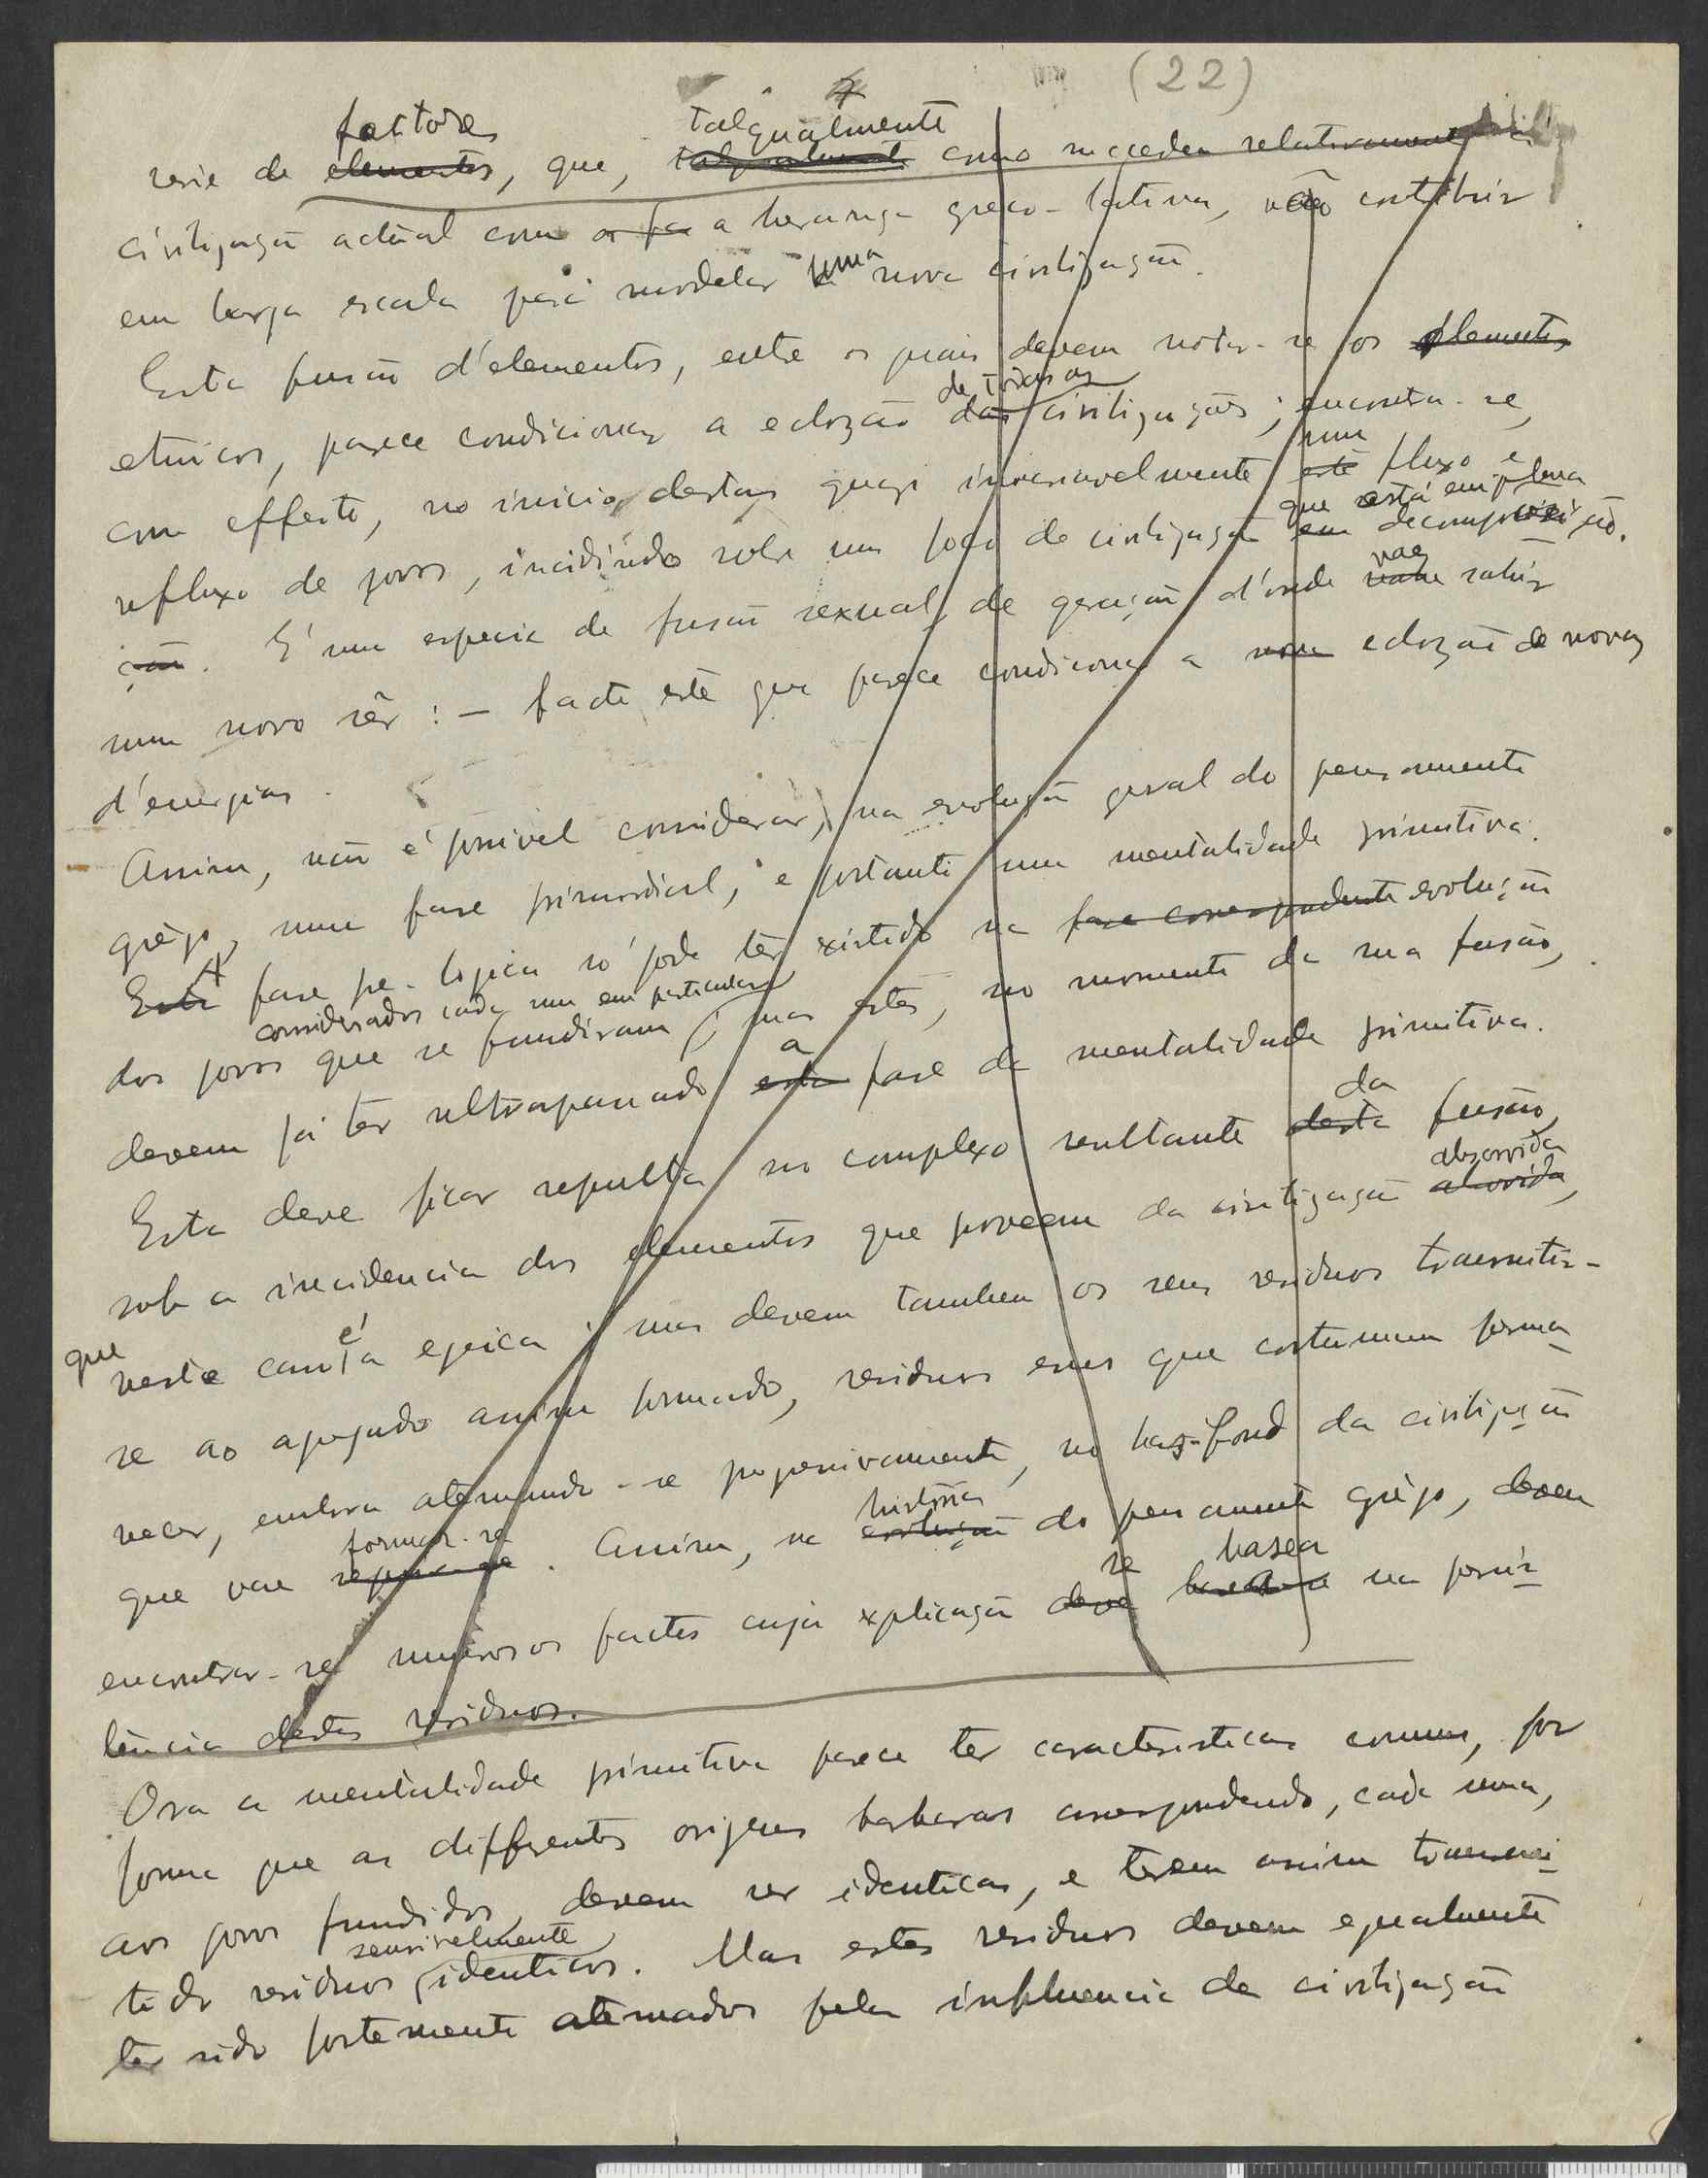 (22)
factores talqualmente
serie de elementos, que, talqualmente como succedeu relativamente á
civilização actual com a herança greco-latina, vão contribuir
em larga escala para modelar uma nova civilização.
Esta fusão d'elementos, entre os quais devem notar-se os elementos
de todas as
etnicos, parece condicionar a eclozão das civilizações; encontra-se,
num
com effeito, no inicio destas, quazi invariavelmente este fluxo e
que está em plena
refluxo de povos, incidindo sobre um foco de civilização em decomposição.
vae
ção. É uma especie de fusão sexual, de geração d'onde vae sahir
num novo sêr: — facto este que parece condicionar a nova eclozão de novas
d'energias.
Assim, não é possivel considerar, na evolução geral do pensamento
grêgo, uma fase primordial, e portanto uma mentalidade primitiva.
A
Esta fase pre-logica só pode têr existido na fase correspondente evolução
considerados cada um em particular
dos povos que se fundiram; mas estes, no momento da sua fusão,
a
devem já ter ultrapassado esta fase de mentalidade primitiva.
da
Esta deve ficar sepulta no complexo resultante desta fusão,
absorvida
sob a incidencia dos elementos que proveem da civilização absorvida,
que é
neste caso a egeica; mas devem tambem os seus residuos transmitir-
se ao agregado assim formado, residuos esses que costumam perma-
necer, embora atenuando-se progressivamente, no bas-fond da civilização
formar-se história
que vae seguir-se. Assim, na evolução do pensamento grêgo, devem
se basea
encontrar-se numerosos factos cuja explicação deve basear-se na persis-
tência destes residuos.
Ora a mentalidade primitiva parece ter caracteristicas comuns, por
forma que as differentes origens barbaras correspondendo, cada uma,
aos povos fundidos, devem ser identicas, e terem assim transmi-
sensivelmente
tido residuos identicos. Mas estes residuos devem egualmente
ter sido fortemente atenuados pela influencia da civilização